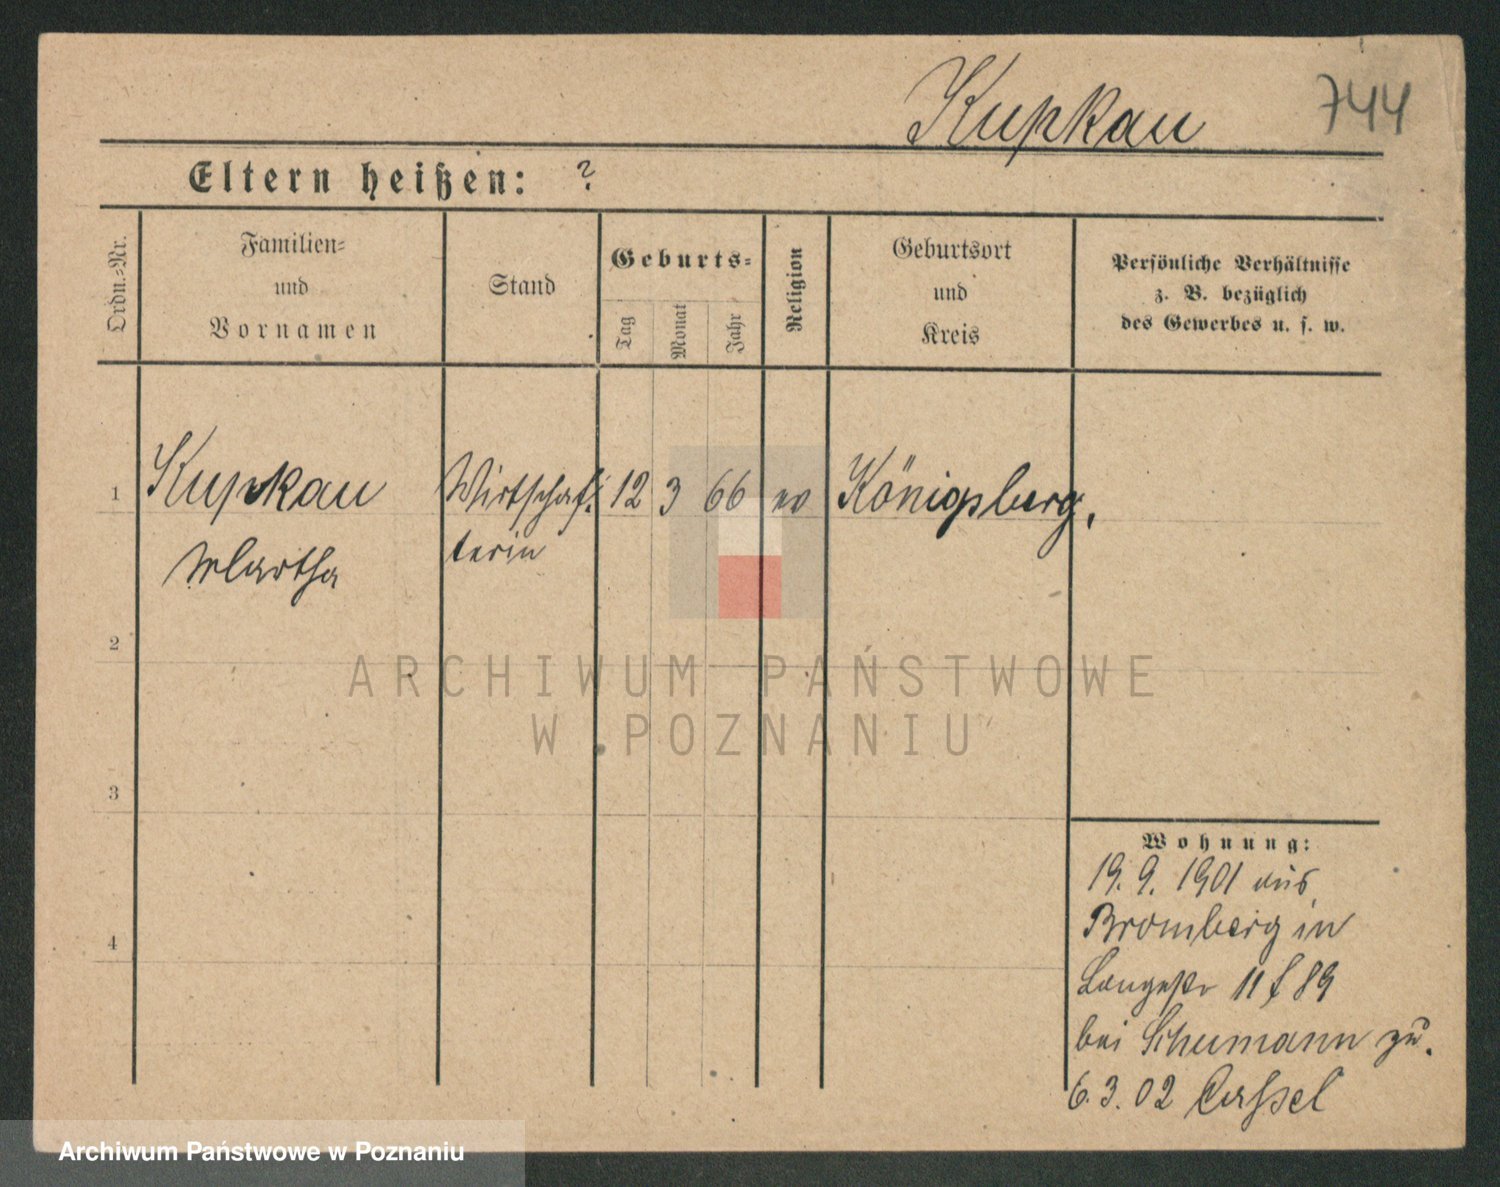 Kupkau 744
Eltern heißen: ?
Ordn.-Nr.
Familien-
und
Vornamen
Stand
Geburts-
Tag
Monat
Jahr
Religion
Geburtsort
und
Kreis
Persönliche Verhältnisse
z. B. bezüglich
des Gewerbes u. s. w.
1 Kupkau Wirtschaf- 12 3 66 ev Königsberg.
Martha terin
2
3
4
ARCHIWUM PAŃSTWOWE
W POZNANIU
Wohnung:
19. 9. 1901 aus
Bromberg in
Langestr 11 f 89
bei Schumann zu.
6. 3. 02 Cassel
Archiwum Państwowe w Poznaniu